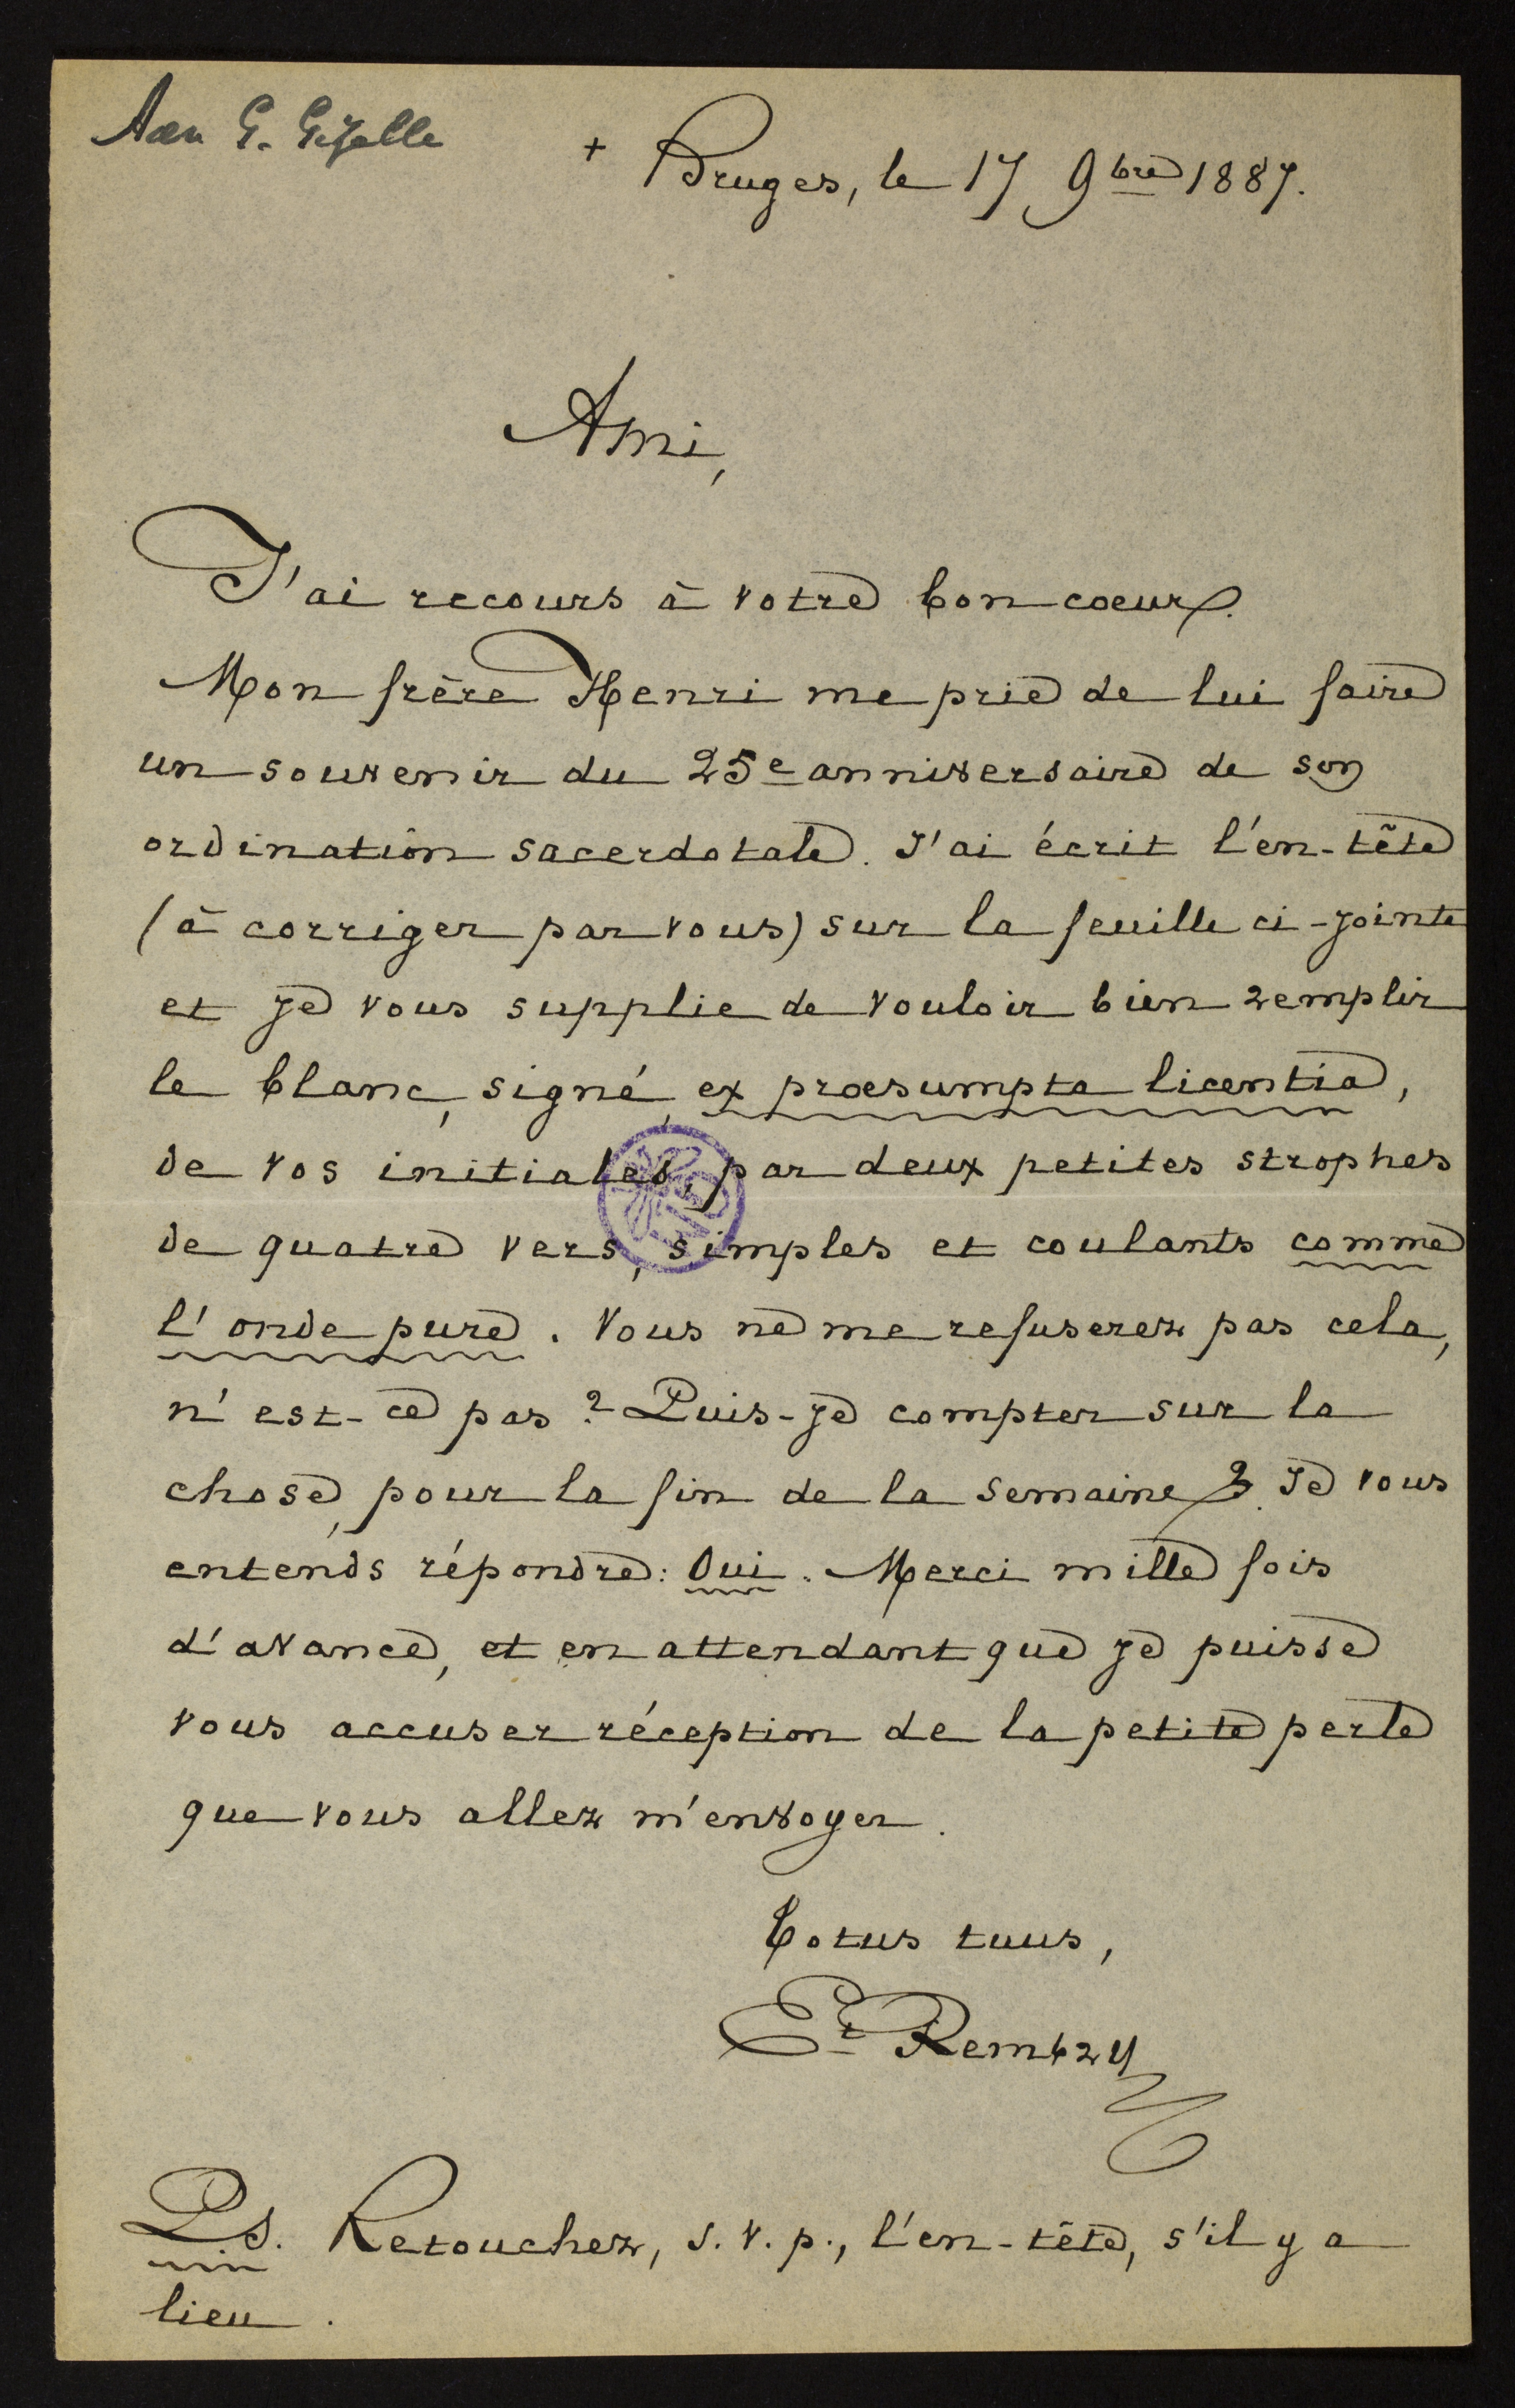 Aan G. Gezelle
+ Bruges, le 17 9bre 1887.
Ami,
J'ai recours à votre bon coeur.
Mon frère Henri me prie de lui faire
un souvenir du 25e anniversaire de son
ordination sacerdotale. J'ai écrit l'en-tête
(à corriger par vous) sur la feuille ci-jointe
et je vous supplie de vouloir bien remplir
le blanc, signé, ex praesumpta licentia,
de vos initiales, par deux petites strophes
de quatre vers, simples et coulants comme
l'onde pure. Vous ne me refuserez pas cela,
n'est-ce pas? Puis-je compter sur la
chose, pour la fin de la semaine? Je vous
entends répondre: Oui. Merci mille fois
d'avance, et en attendant que je puisse
vous accuser réception de la petite perle
que vous allez m'envoyer.
Totus tuus,
Et Rembry
PS. Retouchez, s.v.p., l'en-tête, s'il y a
lieu.